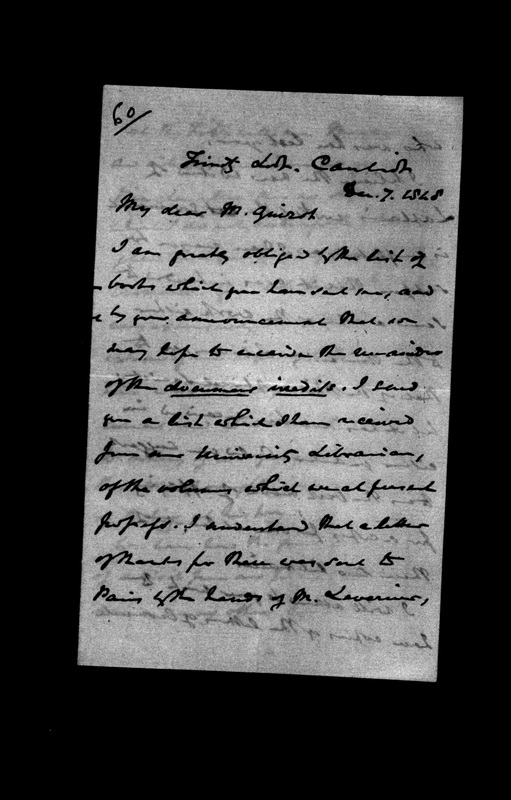 60/
Trinity Lodge. Cambridge
Dec. 7. 1848
My dear M. Guizot
I am greatly obliged by the list of
books which you have sent me, and
by your announcement that we
may hope to receive the remainder
of the documens inedits. I send
you a list which I have received
from our University Librarian,
of the volumes which we at present
possess. I understand that a letter
of thanks for these was sent to
Paris by the hands of M.